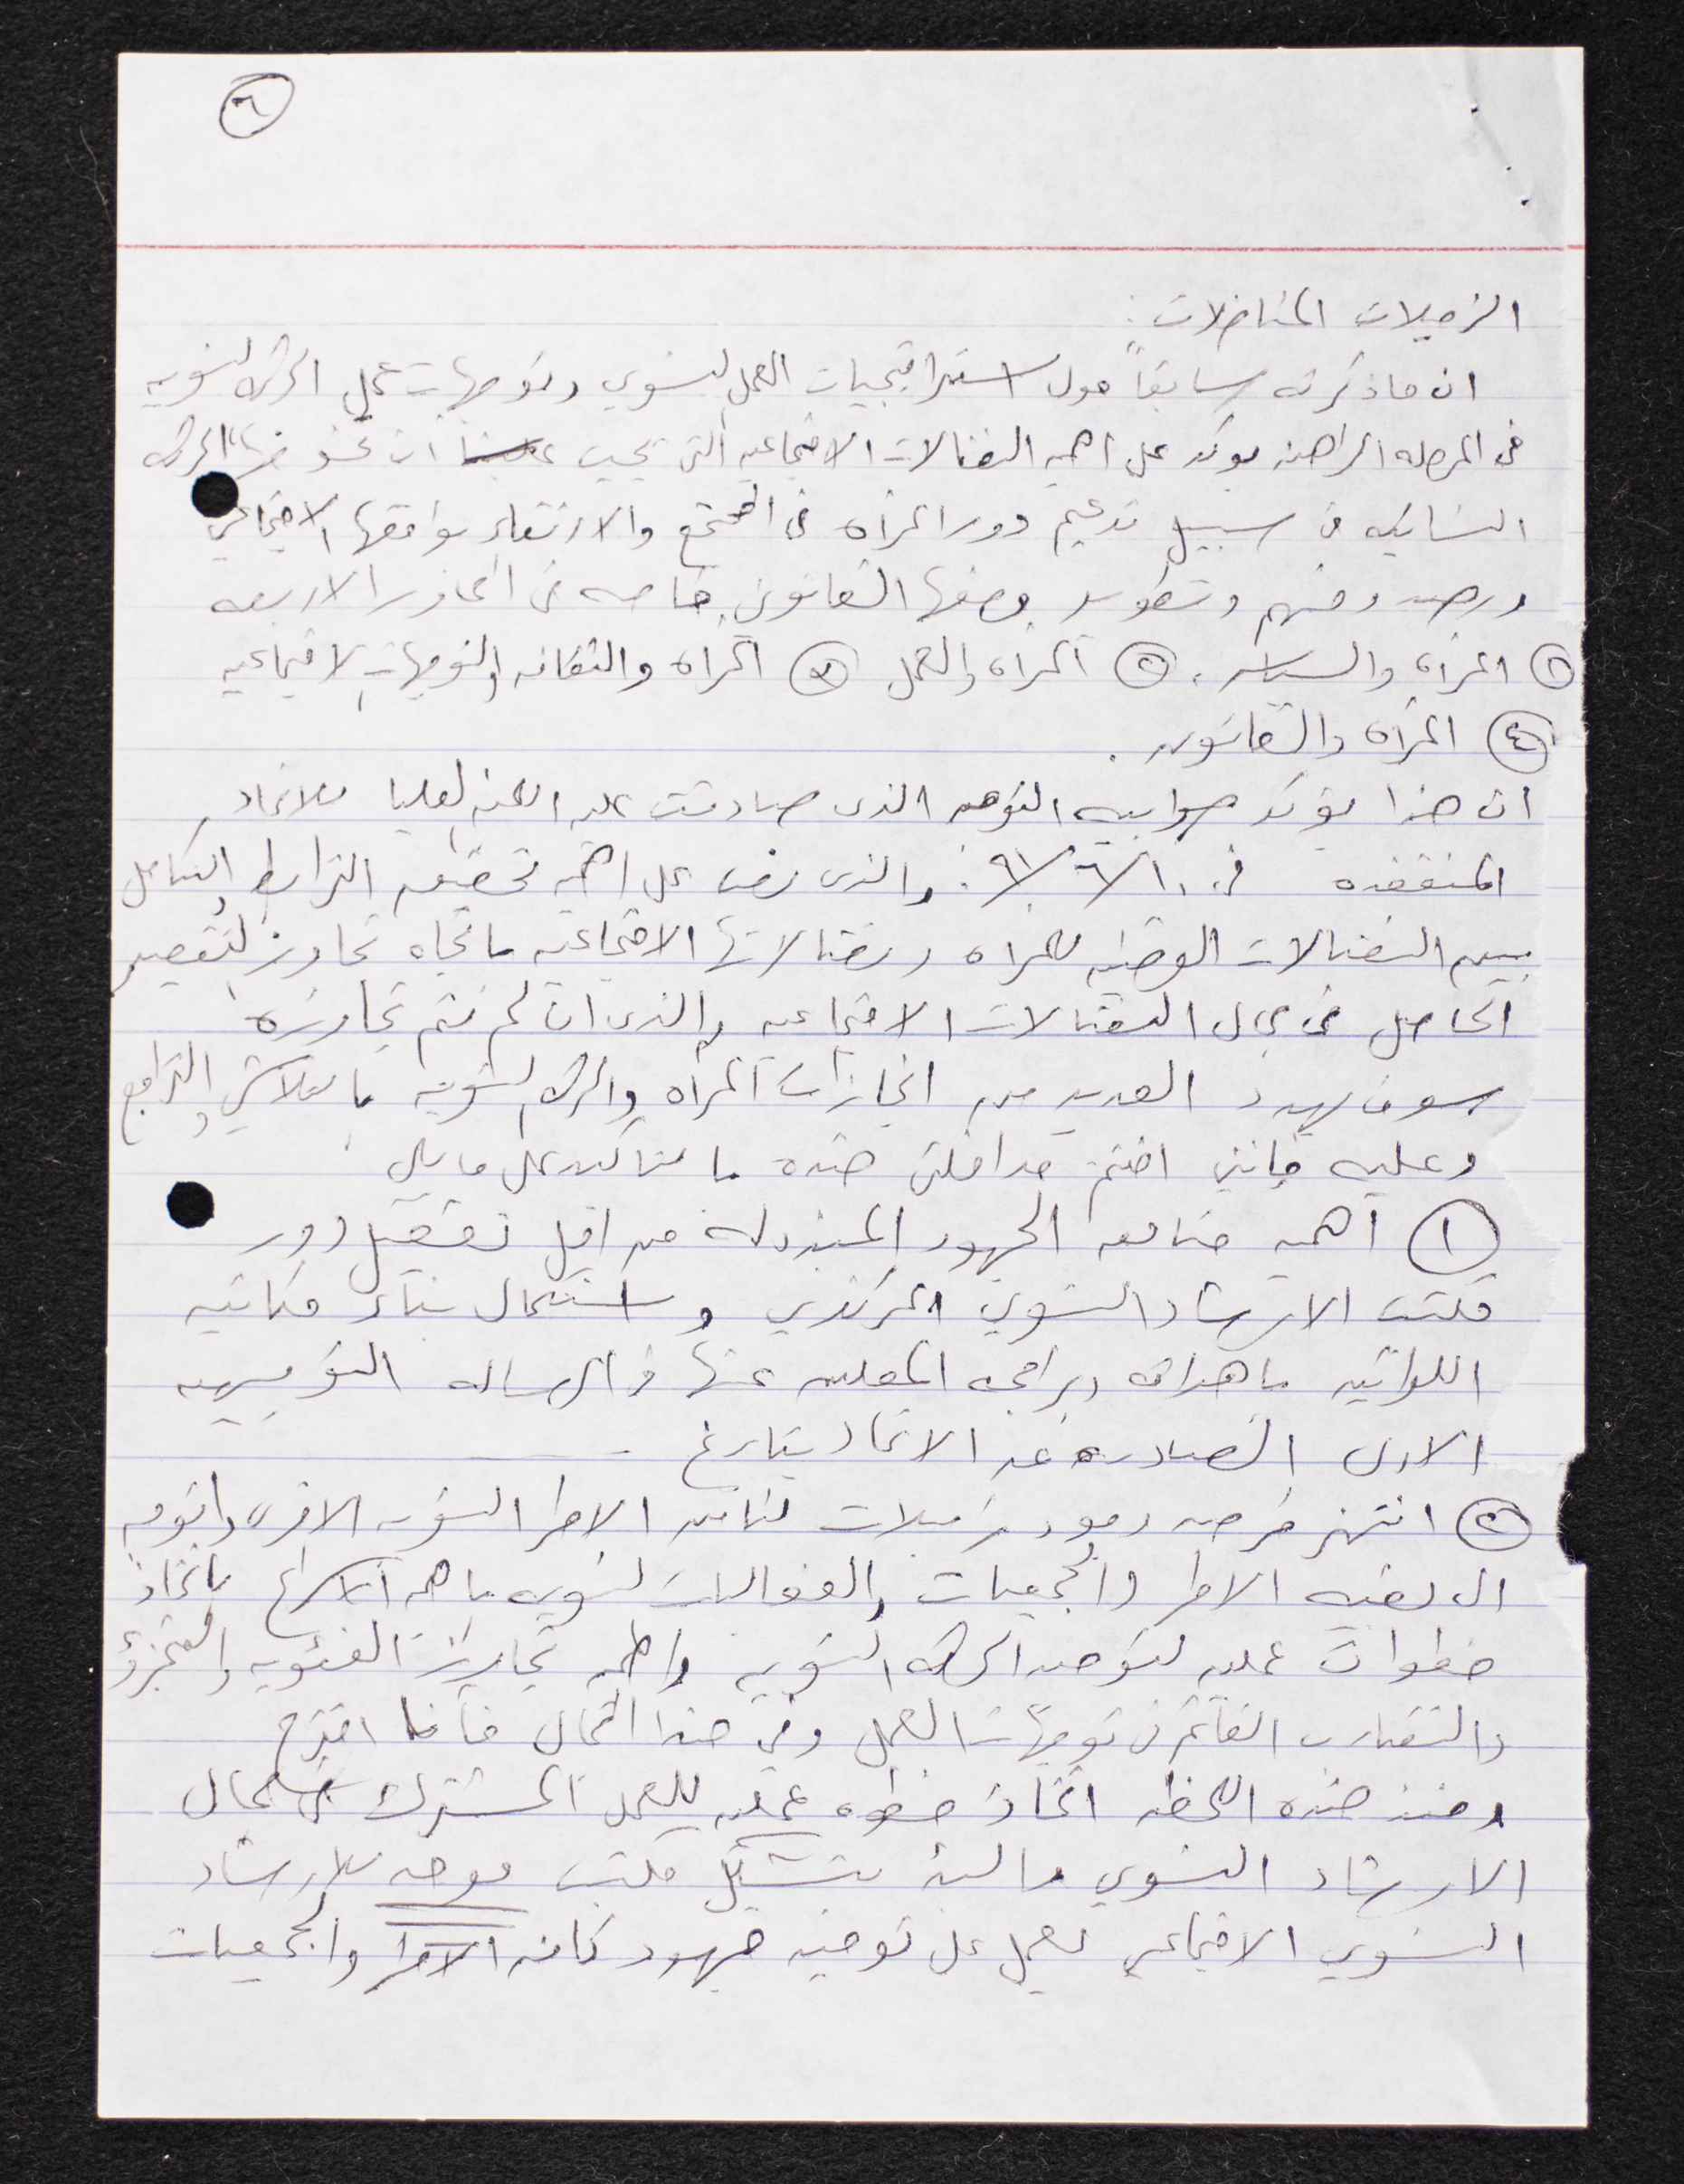 ٦
الزميلات المناضلات:
ان ماذكرته سابقاً حول استراتيجيات العمل النسوي وتوجهات عمل الحركه النسويه
في المرحله الراهنه يوكد على اهميه النضالات الاجتماعيه التي يجب ان تخوضها الحركه
النسائيه في سبيل تدعيم دور المرأه في المجتمع والارتقاء بواقعها الاجتماعي
ورصد وفهم وتطوير وضعها القانوني خاصه في المحاور الاربعه
① المرأه والسياسه. ② المرأه والعمل ③ المرأه والثقافه والتوجهات الاجتماعيه
④ المرأه والقانون.
ان هذا يؤكد صوابيه التوجه الذي صادقت عليه اللجنه العليا للاتحاد
المنعقده في ١٠/٦/٩١. والذي نص على اهميه تحقيق الترابط والتكامل
بين النضالات الوطنيه للمرأه ونضالاتها الاجتماعيه باتجاه تجاوز التقصير
الحاصل في مجال النضالات الاجتماعيه والذي ان لم يتم تجاوزه
سوف يهدد العديد من انجازات المرأه والحركه النسويه بالتلاشي والتراجع
وعليه فإنني اختم مداخلتي هذه بالتأكيد على مايلي
① اهميه متابعه الجهود المبذوله من اجل تفعيل دور
مكتب الارشاد النسوي المركزي واستكمال بناء مكاتبه
اللوائيه باهدافه وبرامجه المعلن عنها في الرساله التوجيهيه
الاولى الصادره عن الاتحاد بتاريخ
② انتهز فرصه وجود زميلات لنا من الاطر النسويه الاخرى واتوجه
الى بقيه الاطر والجمعيات والفعاليات النسويه باهميه الاسراع باتخاذ
خطوات عمليه لتوحيد الحركه النسويه واهميه تجاوز الفئويه والتجزؤ
والتضارب القائم في توجهات العمل وفي هذا المجال فأنا اقترح
ومنذ هذه اللحظه اتخاذ خطوه عمليه للعمل المشترك في مجال
الارشاد النسوي والبدء بتشكيل مكتب موحد للارشاد
النسوي الاجتماعي يعمل على توحيد جهود كافه الاطر والجمعيات